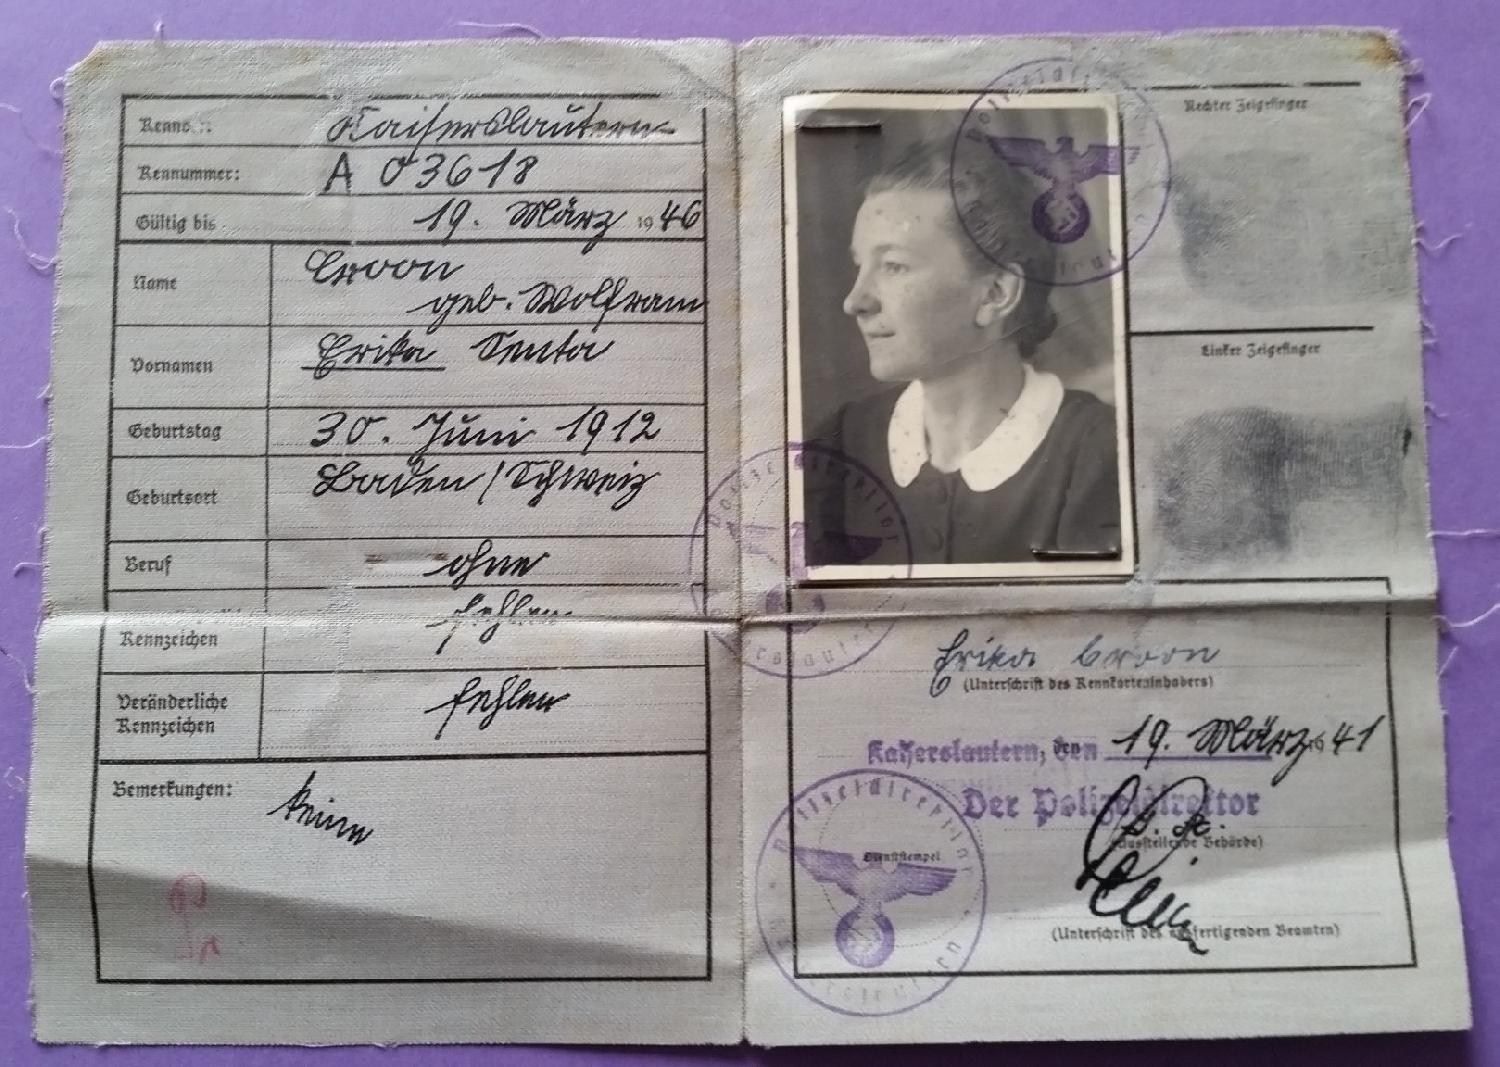 Kaiserslautern
Kennummer: A 03618
Gültig bis 19. März 1946
Name Croon
geb. Wolfram
Vornamen Erika Senta
Geburtstag 30. Juni 1912
Geburtsort Baden/Schweiz
Beruf ohne
Kennzeichen fehlen
Veränderliche fehlen
Kennzeichen
Bemerkungen: keine
Rechter Zeigefinger
Linker Zeigefinger
Polizeidirektor
Kaiserslautern
Erika Croon
(Unterschrift des Kennkarteninhabers)
Kaiserslautern, den 19. März 1941
Der Polizeidirektor
(Ausstellende Behörde)
Dienststempel
Polizeidirektor
Kaiserslautern
(Unterschrift des ausfertigenden Beamten)